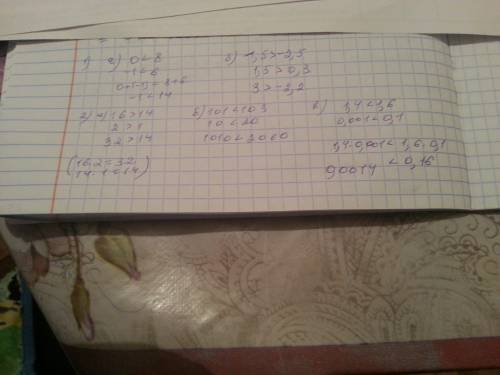 1) а) 0 < 8
-1 < 6
0+(-1) < 8+6
-1 < 14
б) 1,5 > -2,5
1,5 > 0,3
3 > -2,2
2) а) 16 > 14
2 > 1
32 > 14
(16·2=32
14·1=14)
б) 101 < 103
10 < 20
1010 < 2060
в) 1,4 < 1,6
0,001 < 0,1
1,4·0,001 < 1,6·0,1
0,0014 < 0,16